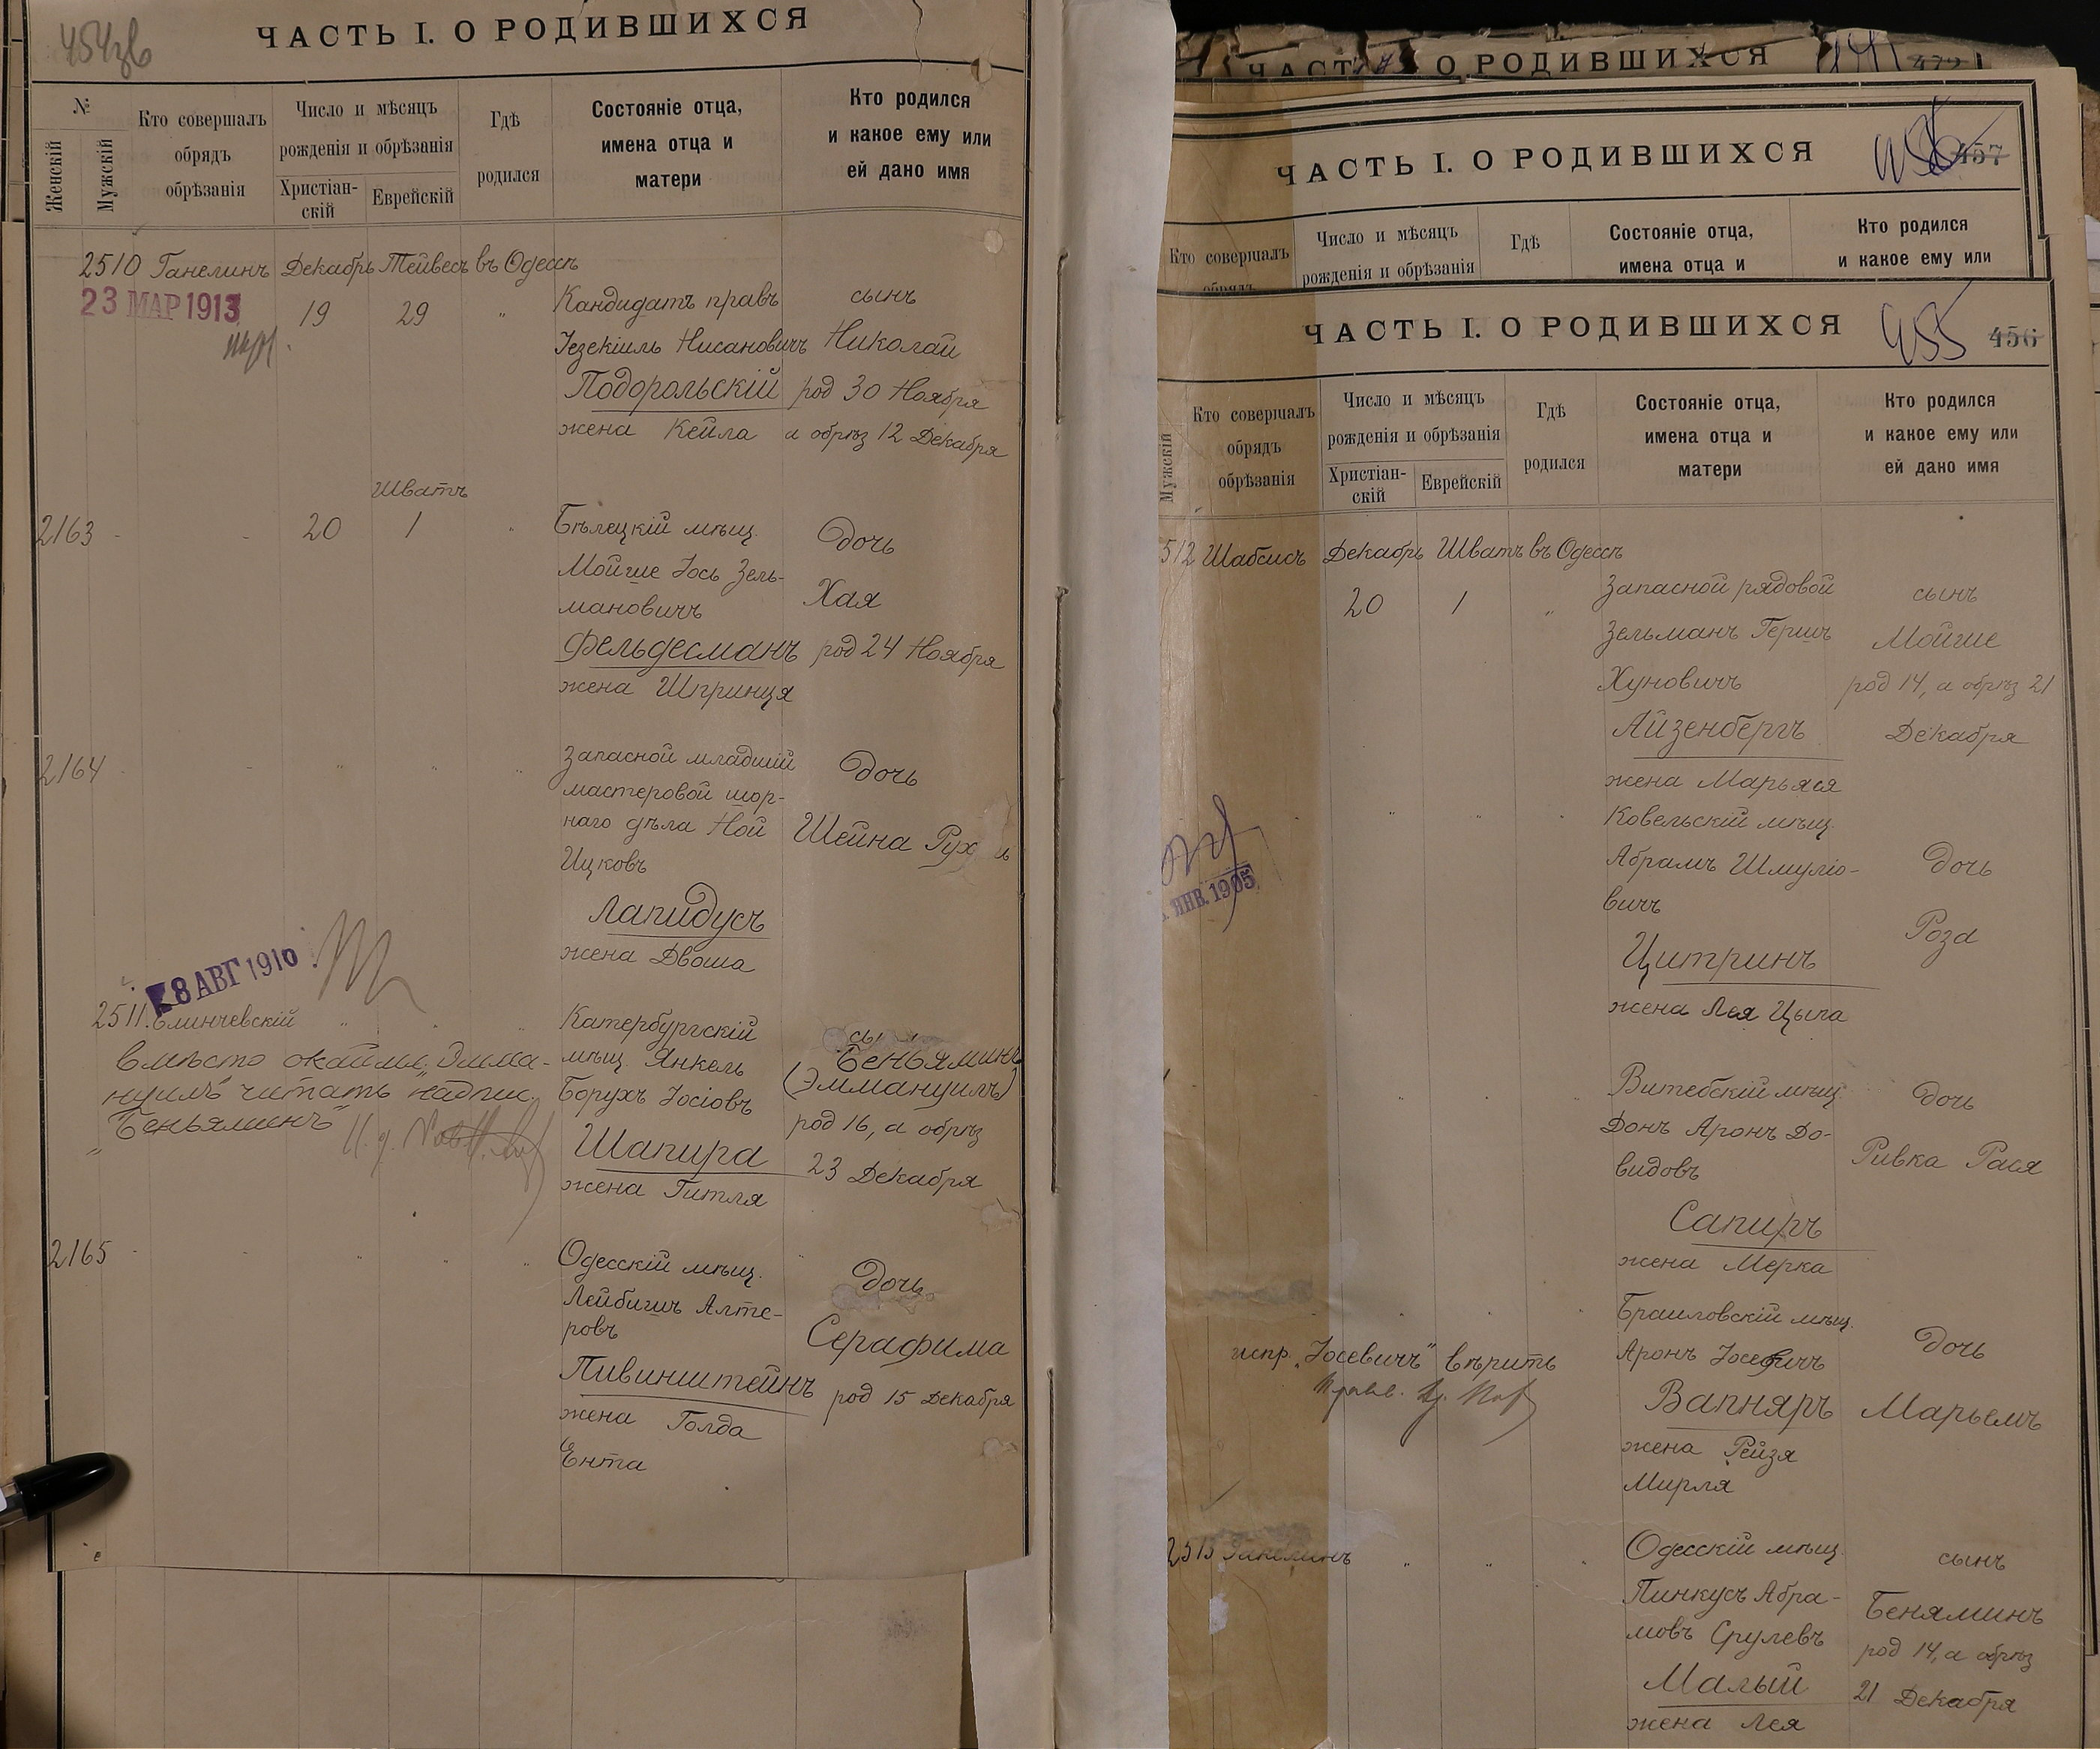 454об
ЧАСТЬ I. О РОДИВШИХСЯ
№
Женскій
Мужскій
Кто совершалъ
обрядъ
обрѣзанія
Число и мѣсяцъ
рожденія и обрѣзанія
Христіан-
скій
Еврейскій
Гдѣ
родился
Состояніе отца,
имена отца и
матери
Кто родился
и какое ему или
ей дано имя
2510 Ганелинъ Декабрь Тейвесъ въ Одессѣ
23 МАР 1913
19 29 "
Кандидатъ правъ
Іезекіиль Нисановичъ
Подорольскій
жена Кейла
сынъ
Николай
род 30 Ноября
а обрѣз 12 Декабря
Шватъ
2163 20 1
Бѣлецкій мѣщ.
Мойше Іось Зель-
мановичъ
Фельдесманъ
жена Шпринця
Дочь
Хая
род 24 Ноября
2164
Запасной младшій
мастеровой шор-
наго дѣла Ной
Ицковъ
Лапидусъ
жена Двоша
Дочь
Шейна
8 АВГ 1910
2511. Блинчевскій
вмѣсто
читать надпис.
"Беньяминъ"
Катербургскій
мѣщ Янкель
Борухъ Іосіовъ
Шапира
жена Гитля
Беньяминъ
(Эммануилъ)
род 16, а обрѣз
23 Декабря
2165
Одесскій мѣщ.
Лейбишъ Алте-
ровъ
Пивинштейнъ
жена Голда
Ента
Дочь
Серафима
род 15 Декабря
ЧАСТЬ I. О РОДИВШИХСЯ
472
ЧАСТЬ I. О РОДИВШИХСЯ
457
Кто совершалъ
обрядъ
Число и мѣсяцъ
рожденія и обрѣзанія
Гдѣ
Состояніе отца,
имена отца и
Кто родился
и какое ему или
ЧАСТЬ I. О РОДИВШИХСЯ
455 456
Мужскій
Кто совершалъ
обрядъ
обрѣзанія
Число и мѣсяцъ
рожденія и обрѣзанія
Христіан-
скій
Еврейскій
Гдѣ
родился
Состояніе отца,
имена отца и
матери
Кто родился
и какое ему или
ей дано имя
512 Шабсисъ Декабрь Шватъ въ Одессѣ
20 1 "
Запасной рядовой
Зельманъ Гершъ
Хуновичъ
Айзенбергъ
жена Марьяся
сынъ
Мойше
род 14, а обрѣз 21
Декабря
ЯНВ. 1905
Ковельскій мѣщ.
Абрамъ Шмуліо-
вичъ
Цитринъ
жена Лея Цыпа
Дочь
Роза
Витебскій мѣщ.
Донъ Аронъ До-
видовъ
Сапиръ
жена Мерка
Дочь
Ривка Рася
испр. „Іосевичъ" вѣрить
Браиловскій мѣщ.
Аронъ Іосевичъ
Вапняръ
жена Рейзя
Мирля
Дочь
Марьемъ
2513 Ганелинъ
Одесскій мѣщ.
Пинкусъ Абра-
мовъ Срулевъ
Малый
жена Лея
сынъ
Беняминъ
род 14, а обрѣз
21 Декабря